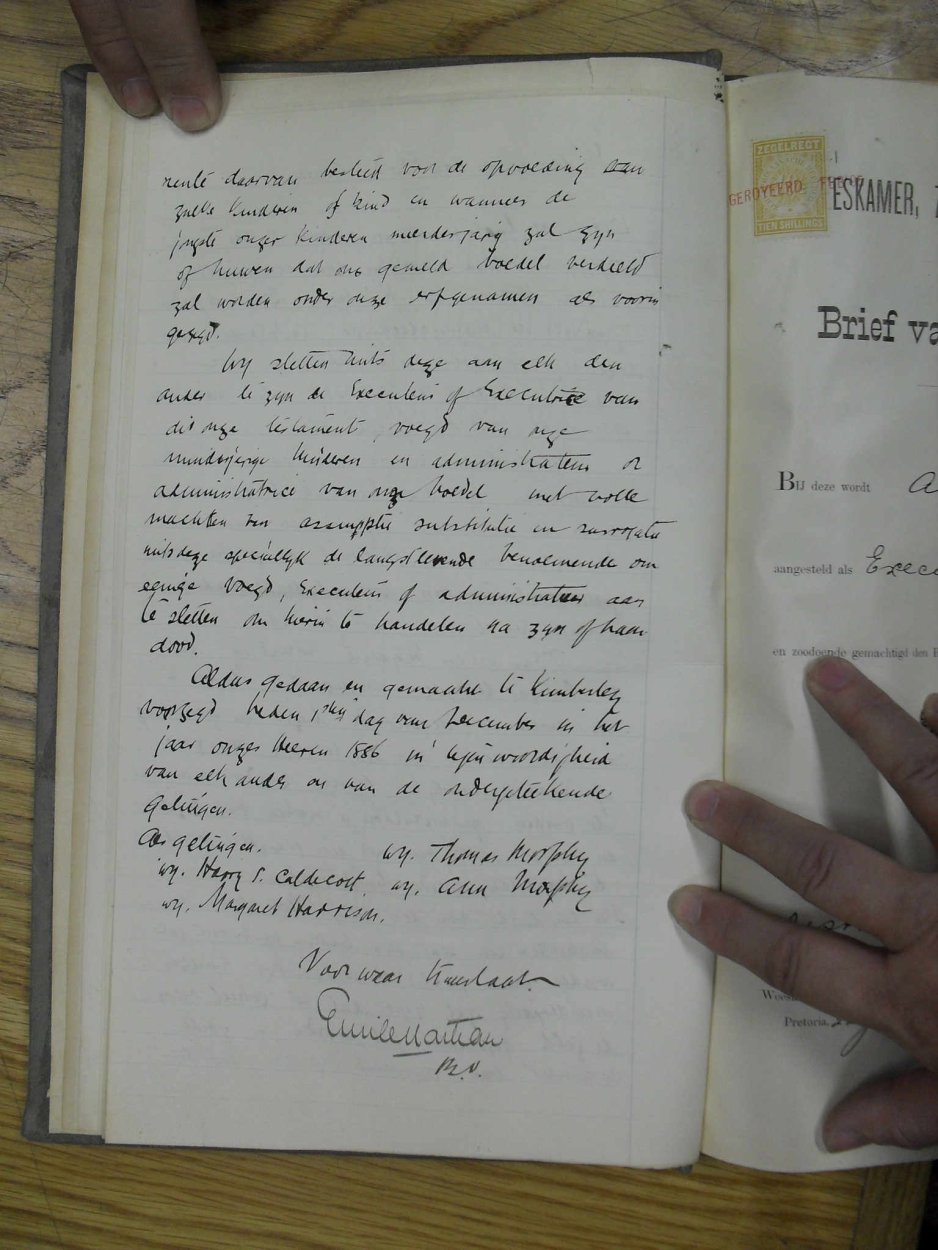 rente daarvan besteed voor de opvoeding van
zulke kinderen of kind en wanneer de
jongste onzer kinderen meerderjarig zal zyn
of huwen dat ons gemeld boedel verdeeld
zal worden onder onze erfgenamen als voorin
gezegd.
Wy stellen mits deze aan elk den
ander te zyn de Executeur of Executrice van
dit onze testament, voogd van onze
minderjarige kinderen en administrateur or
administratrice van onze boedel met volle
machten van assumptie substitutie en surrogatie
mits deze speciallyk de langstlevende benoemende om
eenige voogd, Executeur of administrateur aan
te stellen om hierin te handelen na zyn of haar
dood.
Aldus gedaan en gemaakt te Kimberley
voorzegd heden 1sten dag van December in het
jaar onzes Heeren 1886 in tegenwoordigheid
van elk ander en van de ondergeteekende
getuigen.
As getuigen.
wg. Thomas Morphy
wg. Harry S. Caldecott. wg. Ann Morphy
wg. Margaret Harrison.
Voor ware translaat.
Emile Nathan
ZEGELREGT
TIEN SHILLINGS
GEROYEERD
ESKAMER,
Brief va
Bij deze wordt
aangestéld als Exec
en zoodoende gemachtigd den B
Wees
Pretoria,